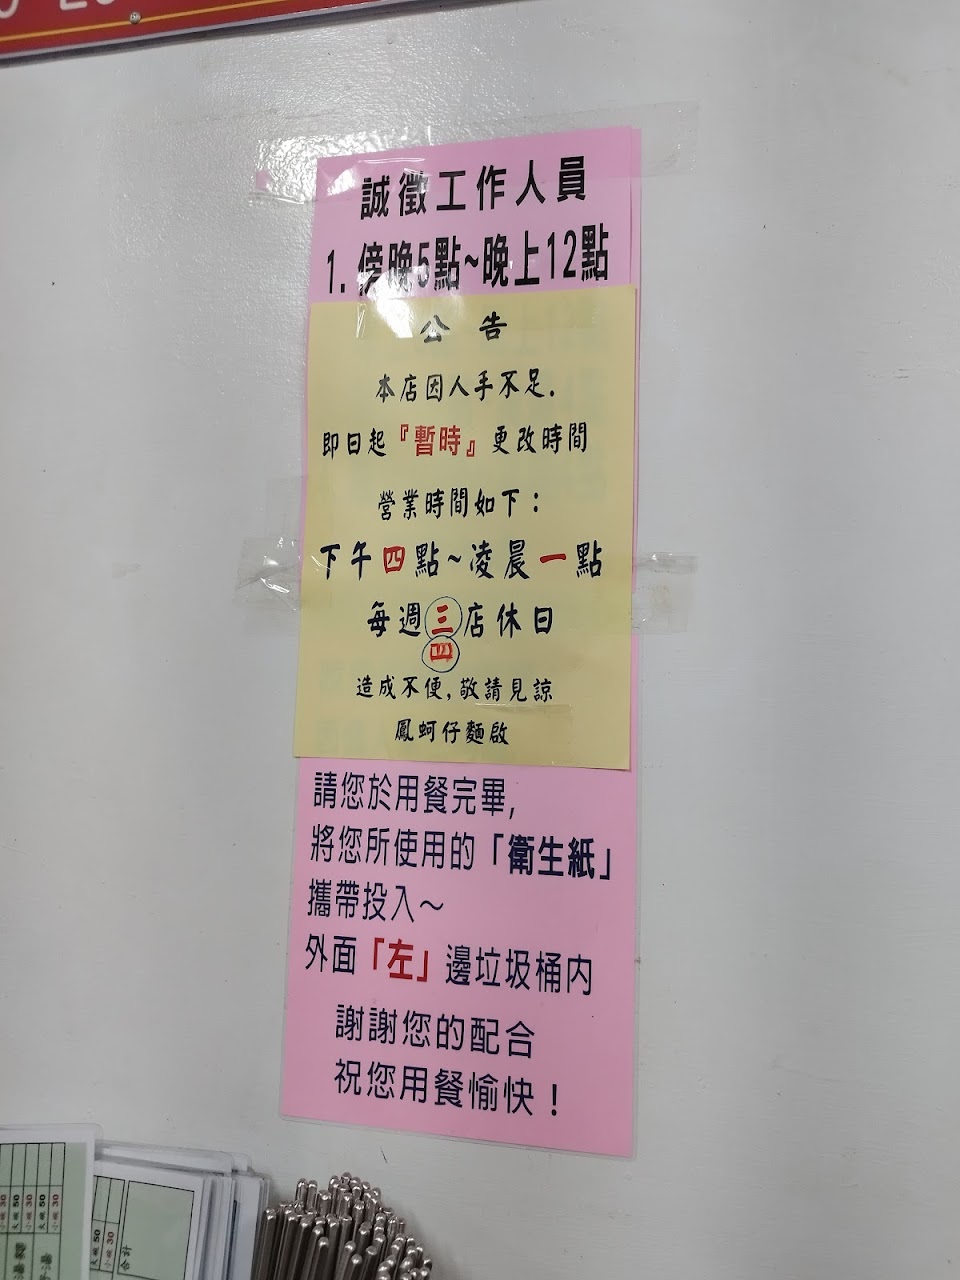 誠徵工作人員
1.傍晚5點~晚上12點
公告
本店因人手不足.
即日起『暫時』更改時間
營業時間如下：
下午四點~凌晨一點
每週三店休日
四
造成不便,敬請見諒
鳳蚵仔麵啟
請您於用餐完畢,
將您所使用的「衛生紙」
攜帶投入～
外面「左」邊垃圾桶內
謝謝您的配合
祝您用餐愉快！
合計